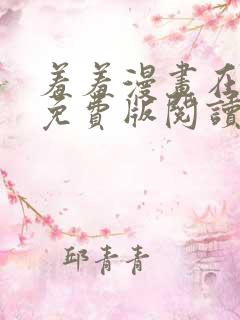 羞羞漫畫在
免費版閱讀
邱青青